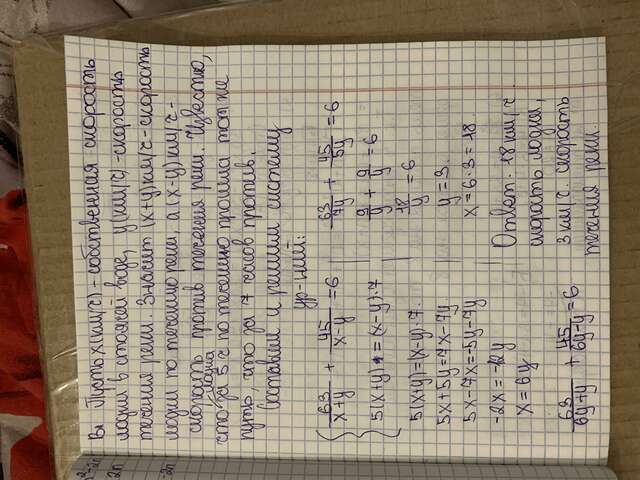 Пусть x(км/ч) - собственная скорость
лодки в стоячей воде, y(км/ч) - скорость
течения реки. Значит (x+y)км/ч - скорость
лодки по течению реки, а (x-y)км/ч -
скорость против течения реки. Известно,
что за 5 ч лодка по течению прошла тот же
путь, что за 7 часов против.
Составим и решим систему
ур-ний:
63/(x+y) + 45/(x-y) = 6
5(x+y) = (x-y)·7
5(x+y)=(x-y)·7.
5x+5y=7x-7y
5x-7x=-5y-7y
-2x=-12y
x=6y
63/(6y+y) + 45/(6y-y) = 6
63/7y + 45/5y = 6
9/y + 9/y = 6
18/y = 6
y=3.
x=6·3=18
Ответ: 18 км/ч.
скорость лодки,
3 км/ч. скорость
течения реки.